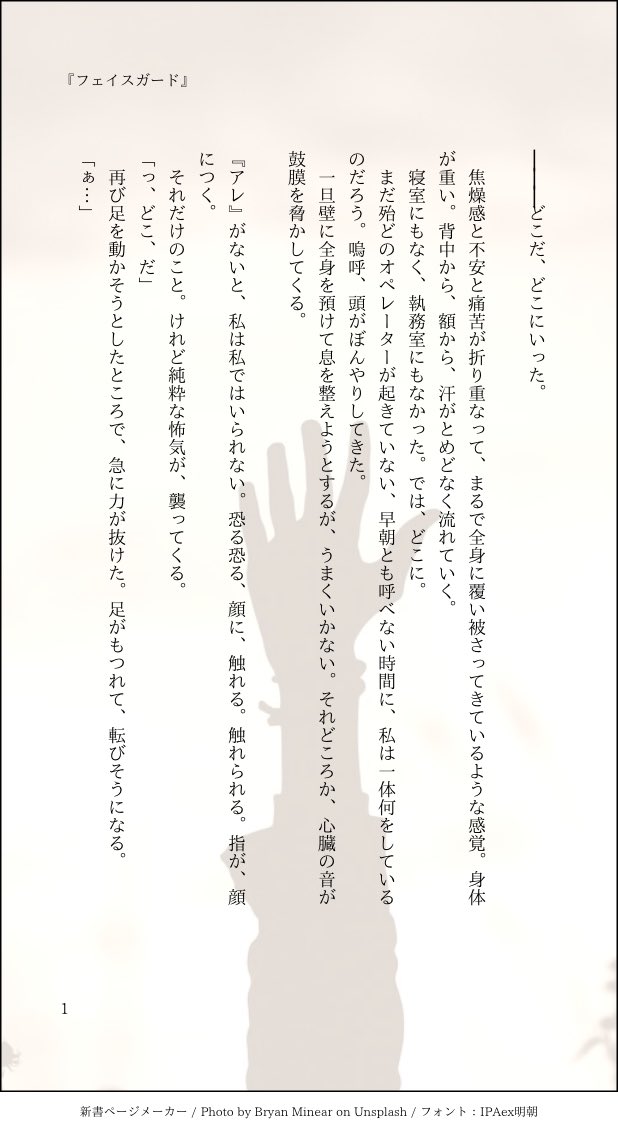 『フェイスガード』
――どこだ、どこにいった。
焦燥感と不安と痛苦が折り重なって、まるで全身に覆い被さってきているような感覚。身体
が重い。背中から、額から、汗がとめどなく流れていく。
寝室にもなく、執務室にもなかった。では、どこに。
まだ殆どのオペレーターが起きていない、早朝とも呼べない時間に、私は一体何をしている
のだろう。嗚呼、頭がぼんやりしてきた。
一旦壁に全身を預けて息を整えようとするが、うまくいかない。それどころか、心臓の音が
鼓膜を脅かしてくる。
『アレ』がないと、私は私ではいられない。恐る恐る、顔に、触れる。触れられる。指が、顔
につく。
それだけのこと。けれど純粋な怖気が、襲ってくる。
「っ、どこ、だ」
再び足を動かそうとしたところで、急に力が抜けた。足がもつれて、転びそうになる。
「ぁ…」
1
新書ページメーカー / Photo by Bryan Minear on Unsplash / フォント：IPAex明朝